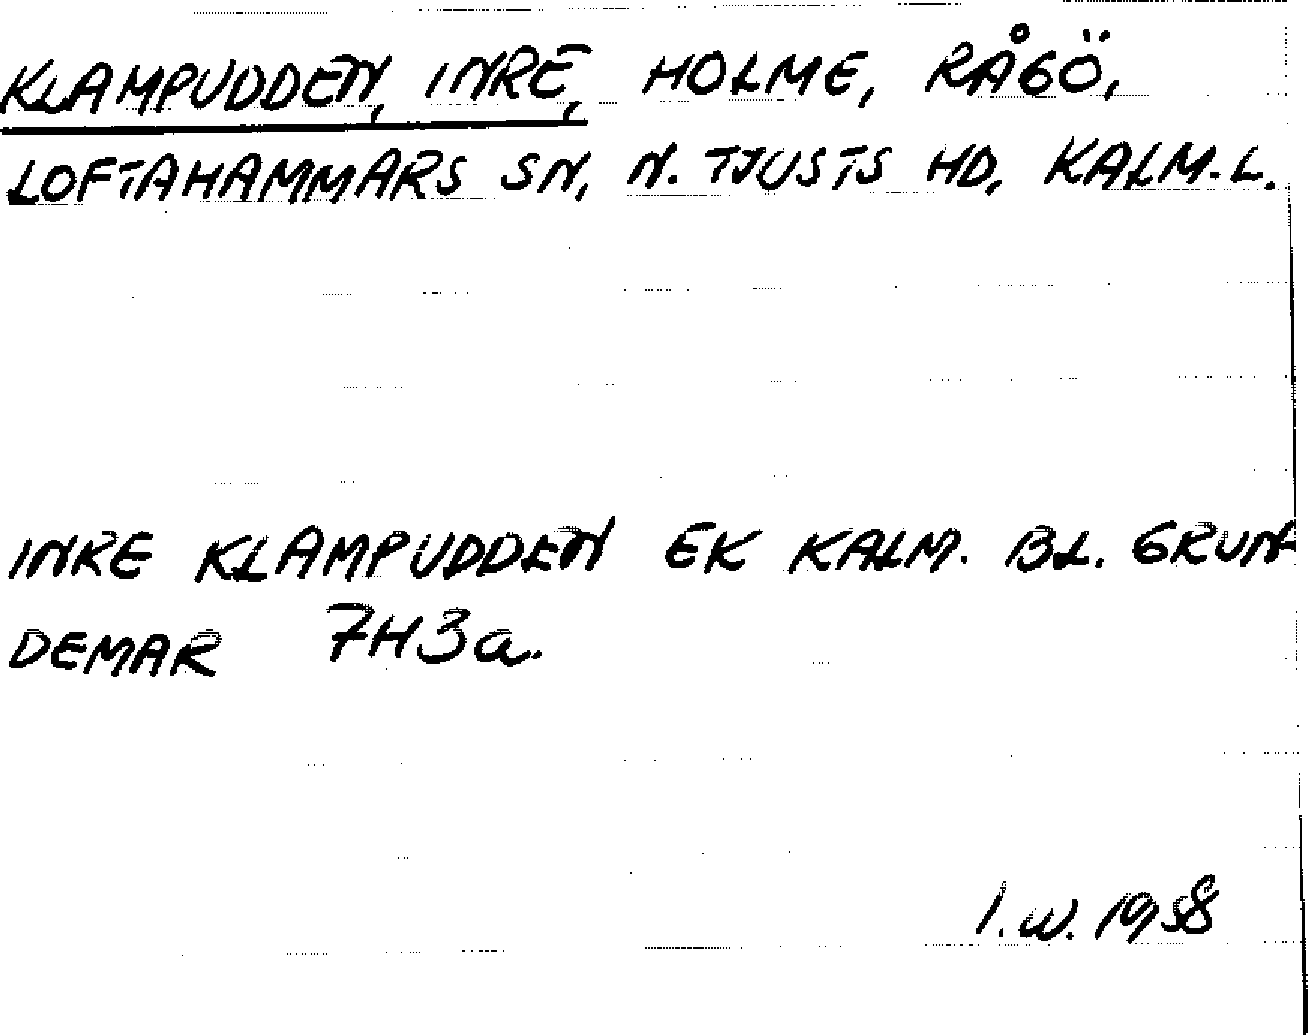 KLAMPUDDEN, INRE, HOLME, RÅGÖ,
LOFTAHAMMARS SN, N. TJUSTS HD, KALM. L.
INRE KLAMPUDDEN EK KALM. BL. GRUN-
DEMAR 7H3a.
I.W. 1958